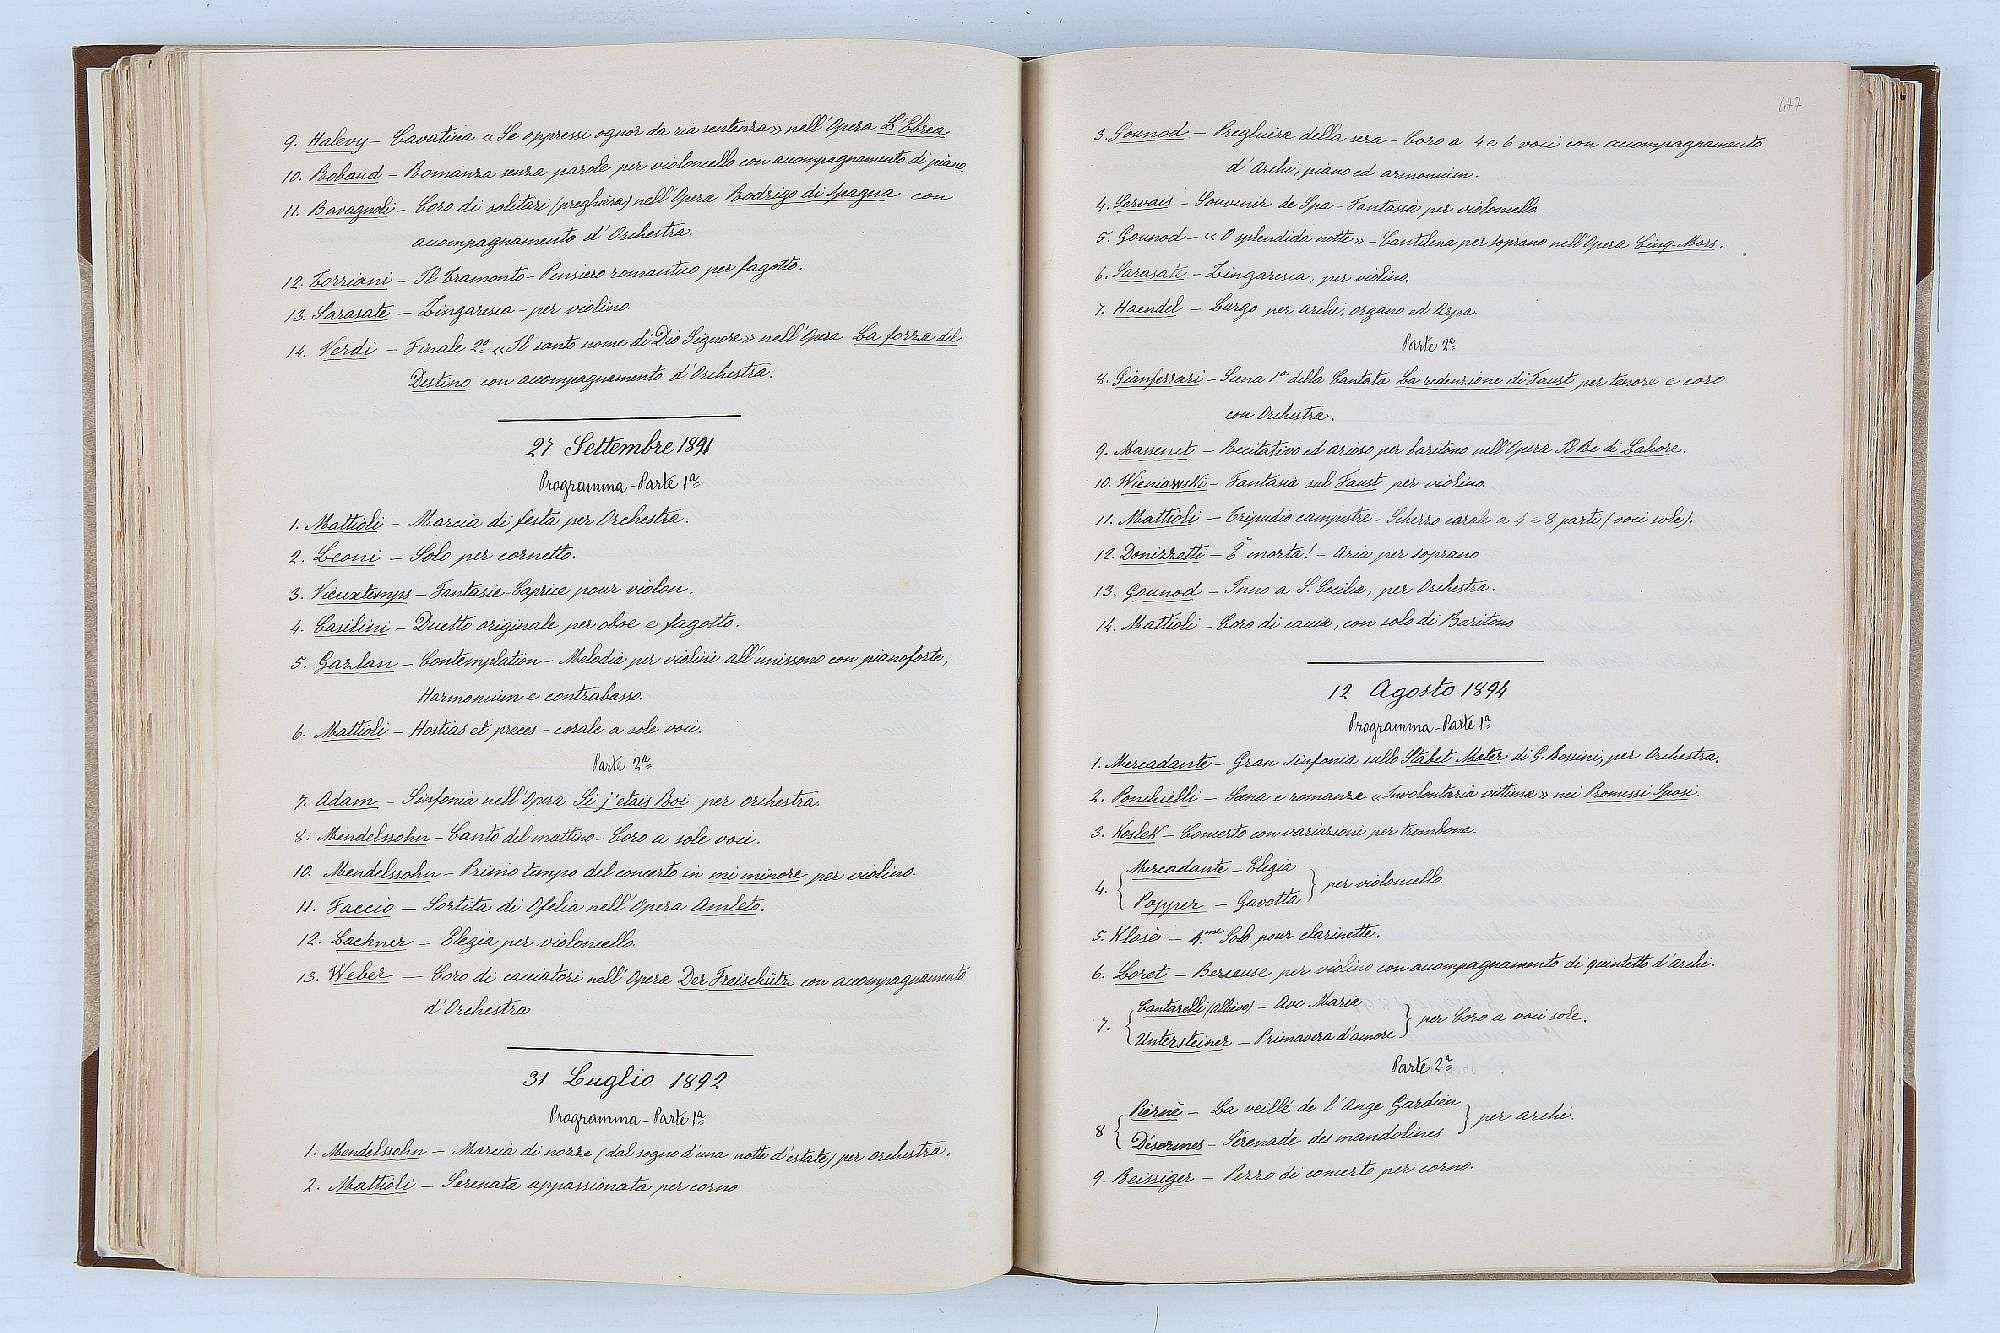 9. Halevy - Cavatina « Se oppressi ognor da ria sentenza » nell'Opera L'Ebrea
10. Rohaud - Romanza senza parole per violoncello con accompagnamento di piano.
11. Bavagnoli - Coro di solitari (preghiera) nell'Opera Rodrigo di Spagna con
accompagnamento d'Orchestra.
12. Torriani - Il Tramonto - Pensiero romantico per fagotto.
13. Sarasate - Zingaresca - per violino
14. Verdi - Finale 2º « Il santo nome di Dio Signore » nell'Opera La forza del
Destino con accompagnamento d'Orchestra.
27 Settembre 1891
Programma - Parte 1ª
1. Mattioli - Marcia di festa per Orchestra.
2. Leoni - Solo per cornetto.
3. Vieuxtemps - Fantasie-Caprice pour violon.
4. Casilini - Duetto originale per oboe e fagotto.
5. Gazlan - Contemplation - Melodia per violini all'unissono con pianoforte,
Harmonium e contrabasso.
6. Mattioli - Hostias et preces - corale a sole voci.
Parte 2ª
7. Adam - Sinfonia nell'Opera Si j'etais Roi per orchestra.
8. Mendelssohn - Canto del mattino - Coro a sole voci.
10. Mendelssohn - Primo tempo del concerto in mi minore per violino.
11. Faccio - Sortita di Ofelia nell'Opera Amleto.
12. Lachner - Elegia per violoncello.
13. Weber - Coro di cacciatori nell'Opera Der Freischütz con accompagnamento
d'Orchestra
31 Luglio 1892
Programma - Parte 1ª
1. Mendelssohn - Marcia di nozze (dal sogno d'una notte d'estate) per orchestra.
2. Mattioli - Serenata appassionata per corno
477
3. Gounod - Preghiera della sera - Coro a 4 e 6 voci con accompagnamento
d'Archi, piano ed armonium.
4. Servais - Souvenir de Spa - Fantasia per violoncello
5. Gounod - « O splendida notte » - Cantilena per soprano nell'Opera Cinq-Mars.
6. Sarasate - Zingaresca, per violino.
7. Haendel - Largo per Archi, organo ed Arpa.
Parte 2ª
8. Gianferrari - Scena 1ª della Cantata La redenzione di Faust per tenore e coro
con Orchestra.
9. Massenet - Recitativo ed arioso per baritono nell'Opera Il Re di Lahore.
10. Wieniawski - Fantasia sul Faust per violino
11. Mattioli - Tripudio campestre - Scherzo corale a 4 e 8 parti (voci sole).
12. Donizzetti - È morta! - Aria per soprano
13. Gounod - Inno a S. Cecilia, per Orchestra.
14. Mattioli - Coro di caccia, con solo di Baritono
12 Agosto 1894
Programma - Parte 1ª
1. Mercadante - Gran sinfonia sullo Stabat Mater di G. Rossini, per Orchestra.
2. Ponchielli - Scena e romanza « Involontaria vittima » nei Promessi Sposi.
3. Koslek - Concerto con variazioni per trombone.
4. { Mercadante - Elegia
Popper - Gavotta } per violoncello
5. Klosè - 4.me Solo pour clarinette.
6. Loret - Berceuse per violino con accompagnamento di quintetto d'archi.
7. { Cantarelli (allievo) - Ave Maria
Untersteiner - Primavera d'amore } per Coro a voci sole.
Parte 2ª
8 { Piernè - La veillé de l'Ange Gardien
Désormes - Sérenade des mandolines } per archi.
9 Reissiger - Pezzo di concerto per corno.